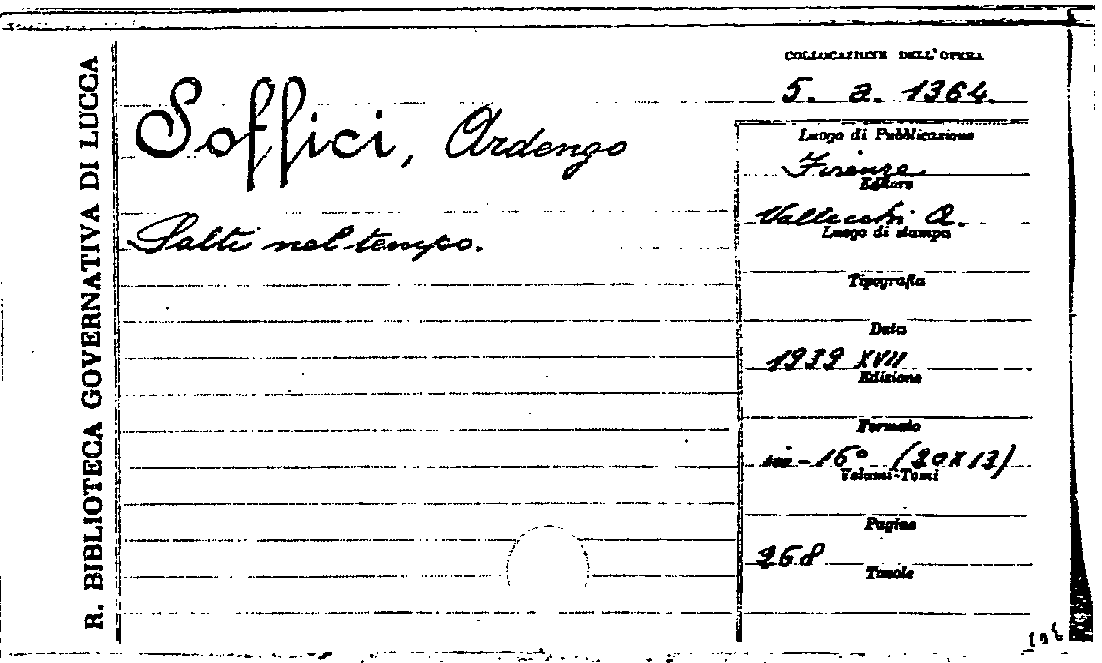 R. BIBLIOTECA GOVERNATIVA DI LUCCA
Soffici, Ardengo
Salti nel tempo.
COLLOCAZIONE DELL'OPERA
5. a. 1364.
Luogo di Pubblicazione
Firenze
Editore
Vallecchi A.
Luogo di stampa
Tipografia
Data
1939 XVII
Edizione
Formato
in-16° (20x13)
Volumi-Tomi
Pagine
268
Tavole